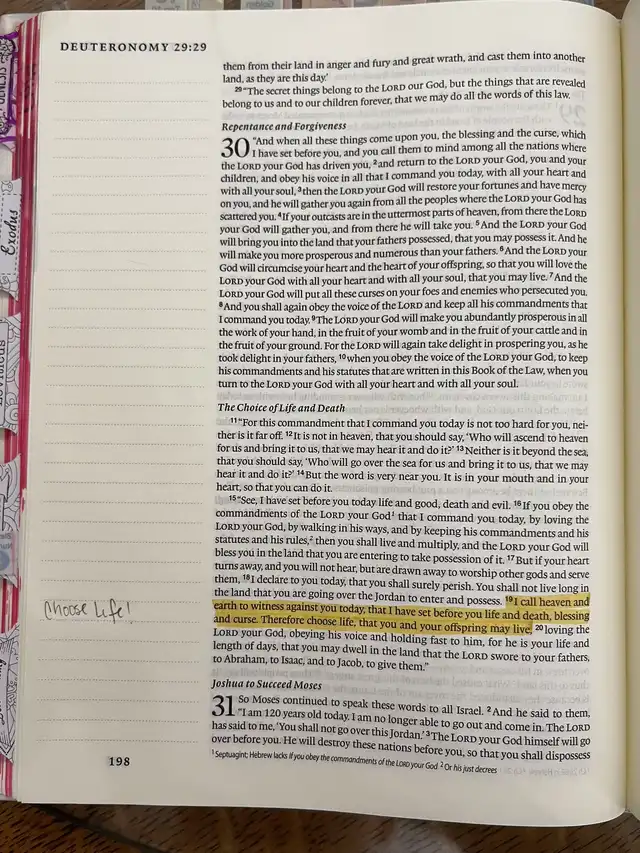 DEUTERONOMY 29:29
them from their land in anger and fury and great wrath, and cast them into another
land, as they are this day.'
29 "The secret things belong to the LORD our God, but the things that are revealed
belong to us and to our children forever, that we may do all the words of this law.
Repentance and Forgiveness
30 "And when all these things come upon you, the blessing and the curse, which
I have set before you, and you call them to mind among all the nations where
the LORD your God has driven you, 2 and return to the LORD your God, you and your
children, and obey his voice in all that I command you today, with all your heart and
with all your soul, 3 then the LORD your God will restore your fortunes and have mercy
on you, and he will gather you again from all the peoples where the LORD your God has
scattered you. 4 If your outcasts are in the uttermost parts of heaven, from there the LORD
your God will gather you, and from there he will take you. 5 And the LORD your God
will bring you into the land that your fathers possessed, that you may possess it. And he
will make you more prosperous and numerous than your fathers. 6 And the LORD your
God will circumcise your heart and the heart of your offspring, so that you will love the
LORD your God with all your heart and with all your soul, that you may live. 7 And the
LORD your God will put all these curses on your foes and enemies who persecuted you.
8 And you shall again obey the voice of the LORD and keep all his commandments that
I command you today. 9 The LORD your God will make you abundantly prosperous in all
the work of your hand, in the fruit of your womb and in the fruit of your cattle and in
the fruit of your ground. For the LORD will again take delight in prospering you, as he
took delight in your fathers, 10 when you obey the voice of the LORD your God, to keep
his commandments and his statutes that are written in this Book of the Law, when you
turn to the LORD your God with all your heart and with all your soul.
The Choice of Life and Death
11 "For this commandment that I command you today is not too hard for you, nei-
ther is it far off. 12 It is not in heaven, that you should say, 'Who will ascend to heaven
for us and bring it to us, that we may hear it and do it?' 13 Neither is it beyond the sea,
that you should say, 'Who will go over the sea for us and bring it to us, that we may
hear it and do it?' 14 But the word is very near you. It is in your mouth and in your
heart, so that you can do it.
15 "See, I have set before you today life and good, death and evil. 16 If you obey the
commandments of the LORD your God 1 that I command you today, by loving the
LORD your God, by walking in his ways, and by keeping his commandments and his
statutes and his rules, 2 then you shall live and multiply, and the LORD your God will
bless you in the land that you are entering to take possession of it. 17 But if your heart
turns away, and you will not hear, but are drawn away to worship other gods and serve
them, 18 I declare to you today, that you shall surely perish. You shall not live long in
the land that you are going over the Jordan to enter and possess. 19 I call heaven and
earth to witness against you today, that I have set before you life and death, blessing
and curse. Therefore choose life, that you and your offspring may live, 20 loving the
LORD your God, obeying his voice and holding fast to him, for he is your life and
length of days, that you may dwell in the land that the LORD swore to your fathers,
to Abraham, to Isaac, and to Jacob, to give them."
Choose Life!
Joshua to Succeed Moses
31 So Moses continued to speak these words to all Israel. 2 And he said to them,
"I am 120 years old today. I am no longer able to go out and come in. The LORD
has said to me, 'You shall not go over this Jordan.' 3 The LORD your God himself will go
over before you. He will destroy these nations before you, so that you shall dispossess
1 Septuagint; Hebrew lacks If you obey the commandments of the LORD your God 2 Or his just decrees
198
Exodus